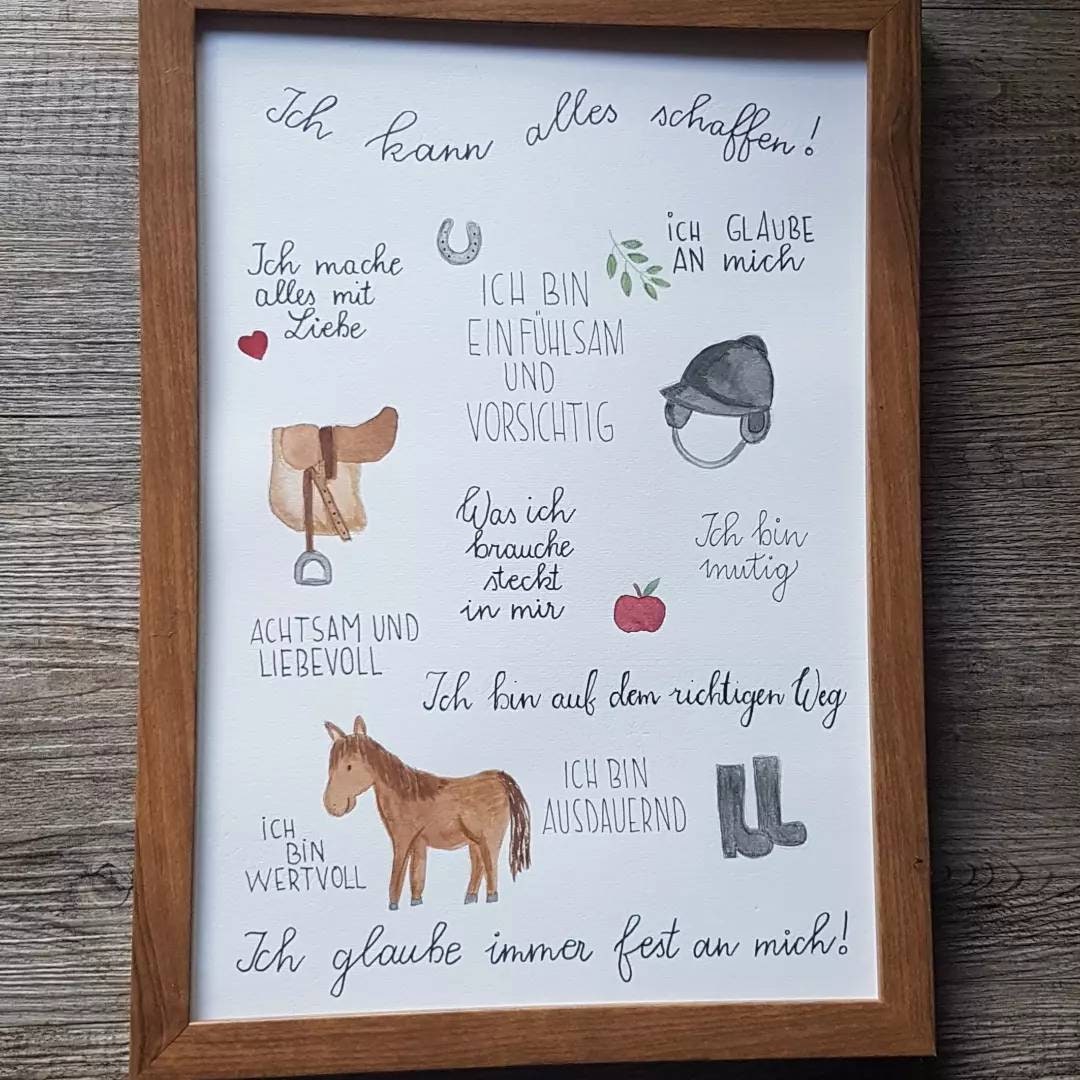 Ich kann alles schaffen!
Ich mache
alles mit
Liebe
ICH BIN
EINFÜHLSAM
UND
VORSICHTIG
iCH GLAUBE
AN mich
Was ich
brauche
steckt
in mir
Ich bin
mutig
ACHTSAM UND
LIEBEVOLL
Ich bin auf dem richtigen Weg
iCH
BiN
WERTVOLL
ICH BIN
AUSDAUERND
Ich glaube immer fest an mich!